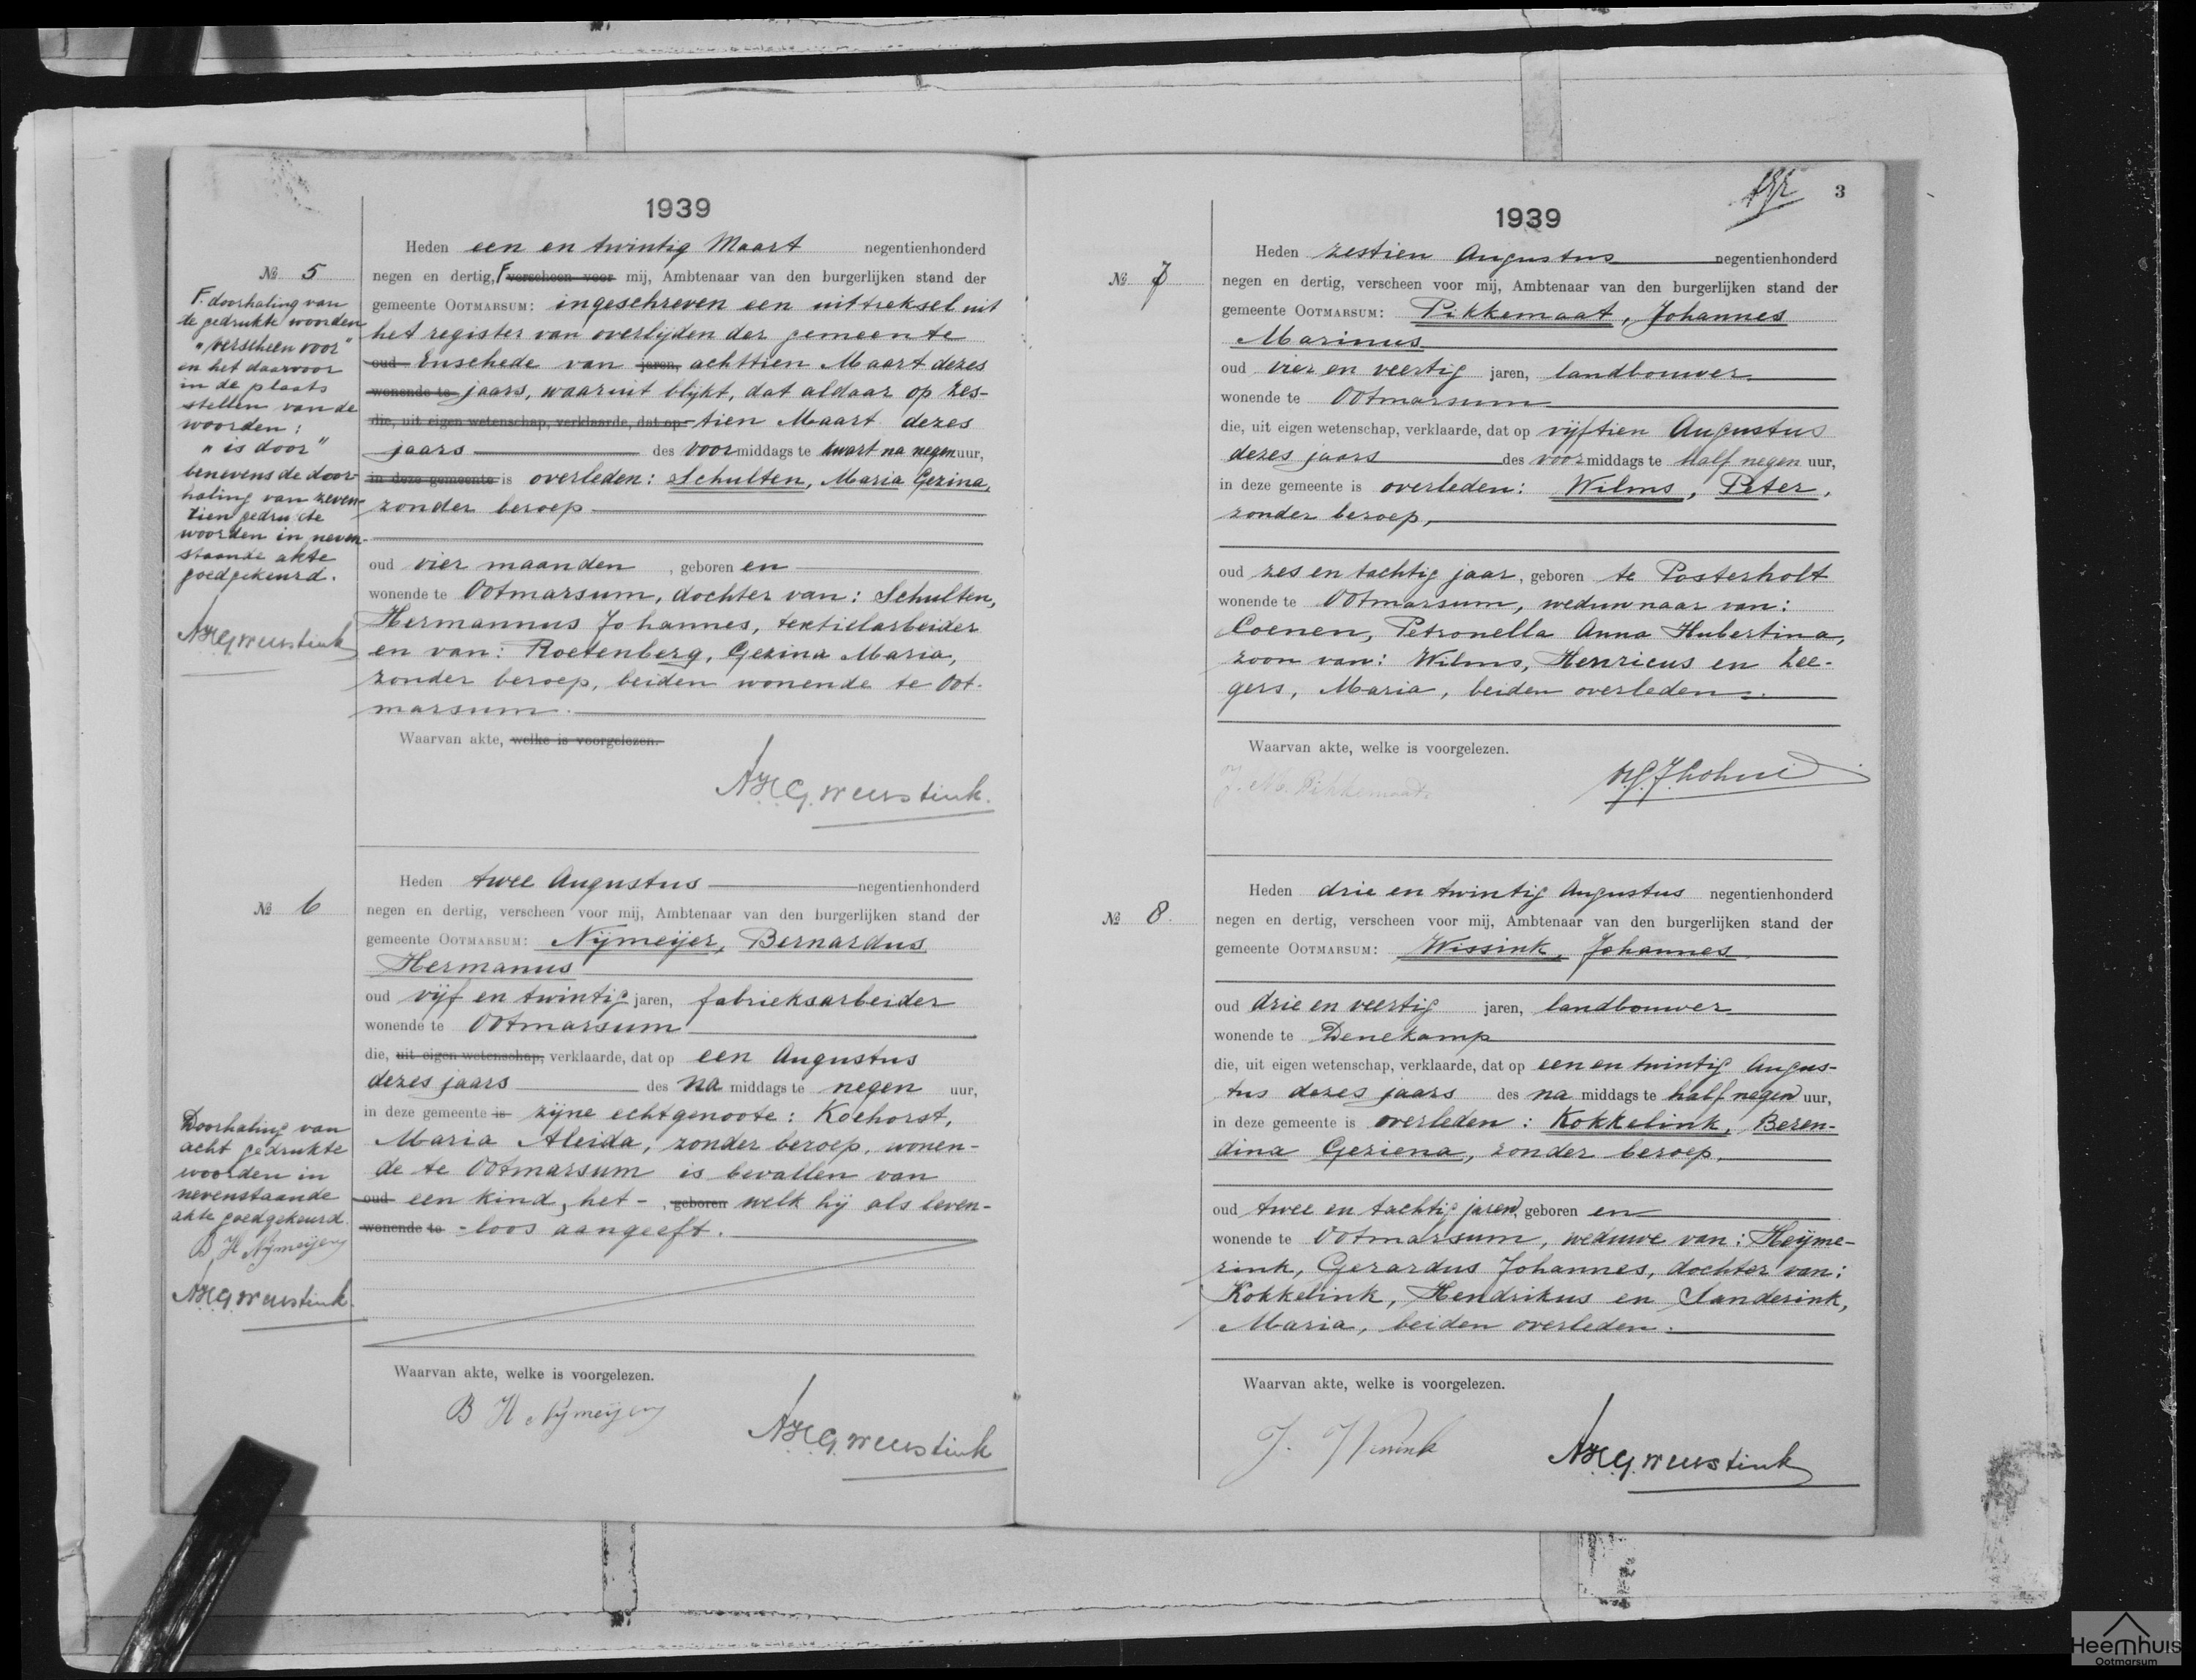 1939
Heden een en twintig Maart negentienhonderd
№ 5
negen en dertig, F verscheen voor mij, Ambtenaar van den burgerlijken stand der
gemeente OOTMARSUM: ingeschreven een uittreksel uit
het register van overlijden der gemeente
oud Enschede van jaren, achttien Maart dezes
wonende te jaars, waaruit blijkt, dat aldaar op zes-
die, uit eigen wetenschap, verklaarde, dat op tien Maart dezes
jaars des voormiddags te kwart na negen uur,
in deze gemeente is overleden: Schulten, Maria Gezina,
zonder beroep
oud vier maanden, geboren en
wonende te Ootmarsum, dochter van: Schulten,
Hermannus Johannes, textielarbeider
en van: Roetenberg, Gezina Maria,
zonder beroep, beiden wonende te Oot-
marsum.
Waarvan akte, welke is voorgelezen.
AHG Weustink.
F. doorhaling van
de gedrukte woorden
"verscheen voor"
en het daarvoor
in de plaats
stellen van de
woorden:
"is door"
benevens de door-
haling van zeven-
tien gedrukte
woorden in neven-
staande akte
goedgekeurd.
AHG Weustink
Heden twee Augustus negentienhonderd
№ 6
negen en dertig, verscheen voor mij, Ambtenaar van den burgerlijken stand der
gemeente OOTMARSUM: Nijmeijer, Bernardus
Hermanus
oud vijf en twintig jaren, fabrieksarbeider
wonende te Ootmarsum
die, uit eigen wetenschap, verklaarde, dat op een Augustus
dezes jaars des na middags te negen uur,
in deze gemeente is zijne echtgenoote: Koehorst,
Maria Aleida, zonder beroep, wonen-
de te Ootmarsum is bevallen van
oud een kind, het-, geboren welk hij als leven-
wonende te -loos aangeeft.
Waarvan akte, welke is voorgelezen.
B H Nijmeijer
AHG Weustink
Doorhaling van
acht gedrukte
woorden in
nevenstaande
akte goedgekeurd.
B H Nijmeijer
AHG Weustink.
3
1939
Heden zestien Augustus negentienhonderd
№ 7
negen en dertig, verscheen voor mij, Ambtenaar van den burgerlijken stand der
gemeente OOTMARSUM: Pikkemaat, Johannes
Marinus
oud vier en veertig jaren, landbouwer
wonende te Ootmarsum
die, uit eigen wetenschap, verklaarde, dat op vijftien Augustus
dezes jaars des voormiddags te half negen uur,
in deze gemeente is overleden: Wilms, Peter,
zonder beroep,
oud zes en tachtig jaar, geboren te Posterholt
wonende te Ootmarsum, weduwnaar van:
Coenen, Petronella Anna Hubertina,
zoon van: Wilms, Henricus en Zee-
gers, Maria, beiden overleden.
Waarvan akte, welke is voorgelezen.
J. M. Pikkemaat.
Heden drie en twintig Augustus negentienhonderd
№ 8.
negen en dertig, verscheen voor mij, Ambtenaar van den burgerlijken stand der
gemeente OOTMARSUM: Wissink, Johannes
oud drie en veertig jaren, landbouwer
wonende te Denekamp
die, uit eigen wetenschap, verklaarde, dat op een en twintig Augus-
tus dezes jaars des na middags te half negen uur,
in deze gemeente is overleden: Kokkelink, Beren-
dina Geziena, zonder beroep,
oud twee en tachtig jaren, geboren en
wonende te Ootmarsum, weduwe van: Heijme-
rink, Gerardus Johannes, dochter van:
Kokkelink, Hendrikus en Sanderink,
Maria, beiden overleden.
Waarvan akte, welke is voorgelezen.
J. Wissink
AHG Weustink
Heemhuis
Ootmarsum